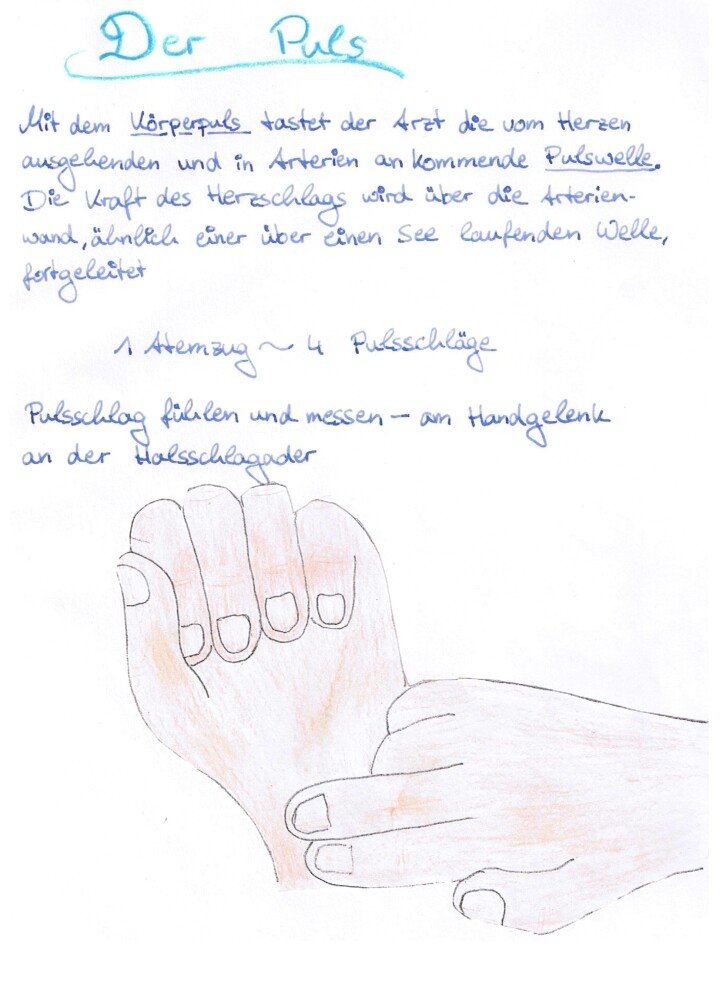 Der Puls
Mit dem Körperpuls tastet der Arzt die vom Herzen
ausgehenden und in Arterien ankommende Pulswelle.
Die Kraft des Herzschlags wird über die Arterien-
wand, ähnlich einer über einen See laufenden Welle,
fortgeleitet
1 Atemzug ~ 4 Pulsschläge
Pulsschlag fühlen und messen – am Handgelenk
an der Halsschlagader